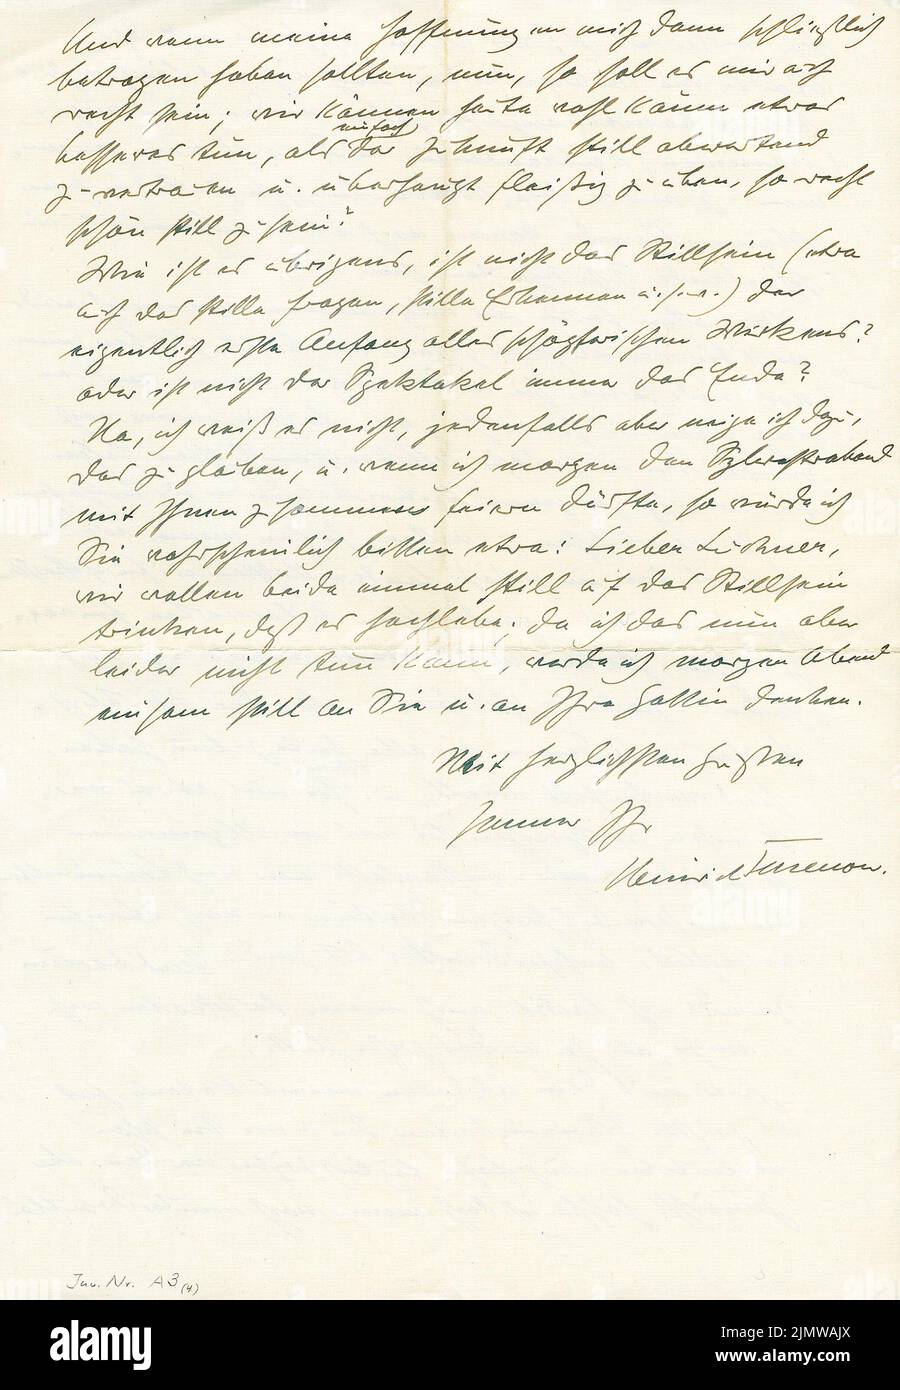 Und wenn meine Hoffnungen mich dann schließlich
betrogen haben sollten, nun, so soll es mir auch
recht sein; wir können heute wohl kaum etwas
einfach
besseres tun, als der Zukunft still abwartend
zu vertrauen u. überhaupt fleißig zu üben, so recht
schön still zu sein?
Wie ist es übrigens, ist nicht das Stillsein (etwa
auch das stille Fragen, stille Erkennen u.s.w.) der
eigentlich erste Anfang alles schöpferischen Wirkens?
oder ist nicht der Spektakel immer das Ende?
Na, ich weiß es nicht, jedenfalls aber neige ich dazu,
das zu glauben, u. wenn ich morgen den Sylvesterabend
mit Ihnen zusammen feiern dürfte, so würde ich
Sie wahrscheinlich bitten etwa: Lieber Lüchner,
wir wollen beide einmal still auf das Stillsein
trinken, daß es hochlebe; da ich das nun aber
leider nicht tun kann, werde ich morgen Abend
einsam still an Sie u. an Ihre Gattin denken.
Mit herzlichsten Grüßen
Immer Ihr
Heinrich Tessenow.
Inv. Nr. A3 (4)
alamy
Image ID: 2JMWAJX
www.alamy.com